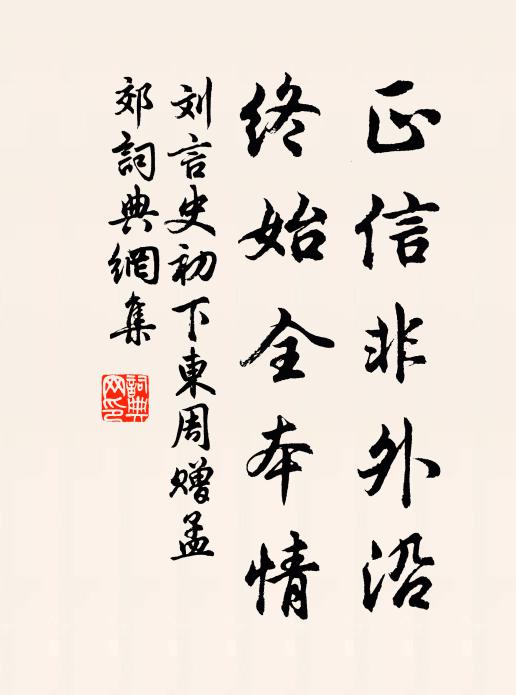 正信非外沿
终始全本情
刘言史初下東周赠孟
郊詞典網集
詞典
网印